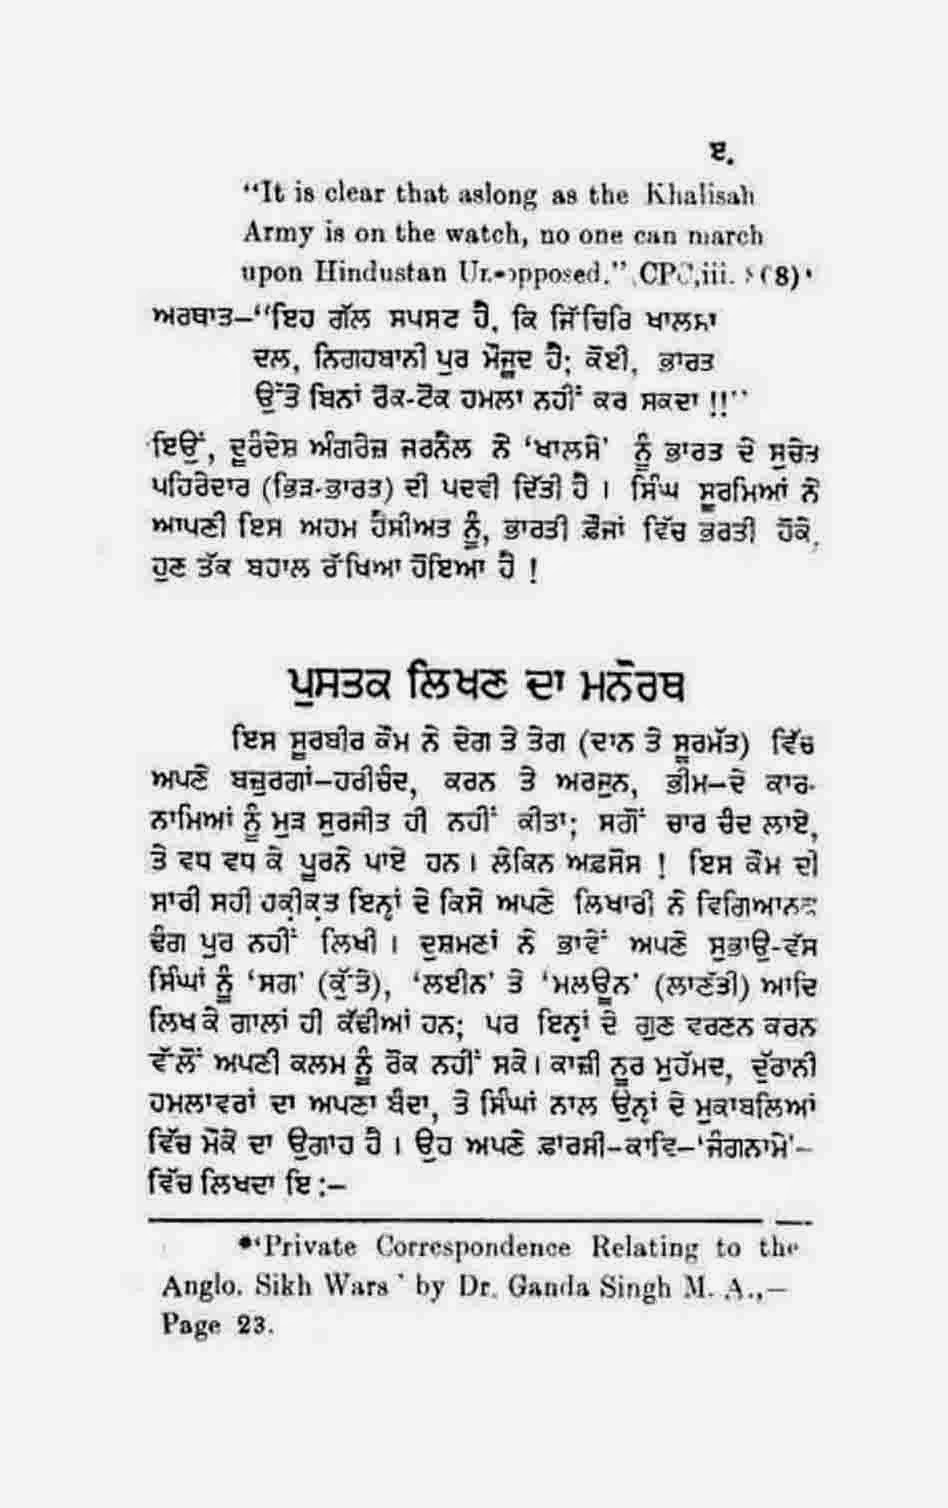 ੲ.
“It is clear that aslong as the Khalisah
Army is on the watch, no one can march
upon Hindustan Un-opposed.” CPC,iii. (8)
ਅਰਥਾਤ–“ਇਹ ਗੱਲ ਸਪਸਟ ਹੈ, ਕਿ ਜਿੱਚਿਰ ਖਾਲਸਾ
ਦਲ, ਨਿਗਹਬਾਨੀ ਪੁਰ ਮੌਜੂਦ ਹੈ; ਕੋਈ, ਭਾਰਤ
ਉੱਤੇ ਬਿਨਾਂ ਰੋਕ-ਟੋਕ ਹਮਲਾ ਨਹੀਂ ਕਰ ਸਕਦਾ !!”
ਇਉਂ, ਦੂਰੰਦੇਸ਼ ਅੰਗਰੇਜ਼ ਜਰਨੈਲ ਨੇ ‘ਖਾਲਸੇ’ ਨੂੰ ਭਾਰਤ ਦੇ ਸੁਚੇਤ
ਪਹਿਰੇਦਾਰ (ਭਿੜ-ਭਾਰਤ) ਦੀ ਪਦਵੀ ਦਿੱਤੀ ਹੈ । ਸਿੰਘ ਸੂਰਮਿਆਂ ਨੇ
ਆਪਣੀ ਇਸ ਅਹਮ ਹੈਸੀਅਤ ਨੂੰ, ਭਾਰਤੀ ਫ਼ੌਜਾਂ ਵਿੱਚ ਭਰਤੀ ਹੋਕੇ,
ਹੁਣ ਤੱਕ ਬਹਾਲ ਰੱਖਿਆ ਹੋਇਆ ਹੈ !
ਪੁਸਤਕ ਲਿਖਣ ਦਾ ਮਨੋਰਥ
ਇਸ ਸੂਰਬੀਰ ਕੌਮ ਨੇ ਦੇਗ ਤੇ ਤੇਗ (ਦਾਨ ਤੇ ਸੂਰਮੱਤ) ਵਿੱਚ
ਅਪਣੇ ਬਜ਼ੁਰਗਾਂ–ਹਰੀਚੰਦ, ਕਰਨ ਤੇ ਅਰਜੁਨ, ਭੀਮ–ਦੇ ਕਾਰ-
ਨਾਮਿਆਂ ਨੂੰ ਮੁੜ ਸੁਰਜੀਤ ਹੀ ਨਹੀਂ ਕੀਤਾ; ਸਗੋਂ ਚਾਰ ਚੰਦ ਲਾਏ,
ਤੇ ਵਧ ਵਧ ਕੇ ਪੂਰਨੇ ਪਾਏ ਹਨ । ਲੇਕਿਨ ਅਫ਼ਸੋਸ ! ਇਸ ਕੌਮ ਦੀ
ਸਾਰੀ ਸਹੀ ਹਕੀਕਤ ਇਨ੍ਹਾਂ ਦੇ ਕਿਸੇ ਅਪਣੇ ਲਿਖਾਰੀ ਨੇ ਵਿਗਿਆਨਕ
ਢੰਗ ਪੁਰ ਨਹੀਂ ਲਿਖੀ । ਦੁਸ਼ਮਣਾਂ ਨੇ ਭਾਵੇਂ ਅਪਣੇ ਸੁਭਾਉ-ਵੱਸ
ਸਿੰਘਾਂ ਨੂੰ ‘ਸਗ’ (ਕੁੱਤੇ), ‘ਲਈਨ’ ਤੇ ‘ਮਲਊਨ’ (ਲਾਣੱਤੀ) ਆਦਿ
ਲਿਖ ਕੇ ਗਾਲਾਂ ਹੀ ਕੱਢੀਆਂ ਹਨ; ਪਰ ਇਨ੍ਹਾਂ ਦੇ ਗੁਣ ਵਰਣਨ ਕਰਨ
ਵੱਲੋਂ ਅਪਣੀ ਕਲਮ ਨੂੰ ਰੋਕ ਨਹੀਂ ਸਕੇ । ਕਾਜ਼ੀ ਨੂਰ ਮੁਹੰਮਦ, ਦੁੱਰਾਨੀ
ਹਮਲਾਵਰਾਂ ਦਾ ਅਪਣਾ ਬੰਦਾ, ਤੇ ਸਿੰਘਾਂ ਨਾਲ ਉਨ੍ਹਾਂ ਦੇ ਮੁਕਾਬਲਿਆਂ
ਵਿੱਚ ਮੌਕੇ ਦਾ ਉਗਾਹ ਹੈ । ਉਹ ਅਪਣੇ ਫ਼ਾਰਸੀ–ਕਾਵਿ–‘ਜੰਗਨਾਮੇ’–
ਵਿੱਚ ਲਿਖਦਾ ਇ :–
*‘Private Correspondence Relating to the
Anglo. Sikh Wars’ by Dr. Ganda Singh M. A.,—
Page 23.